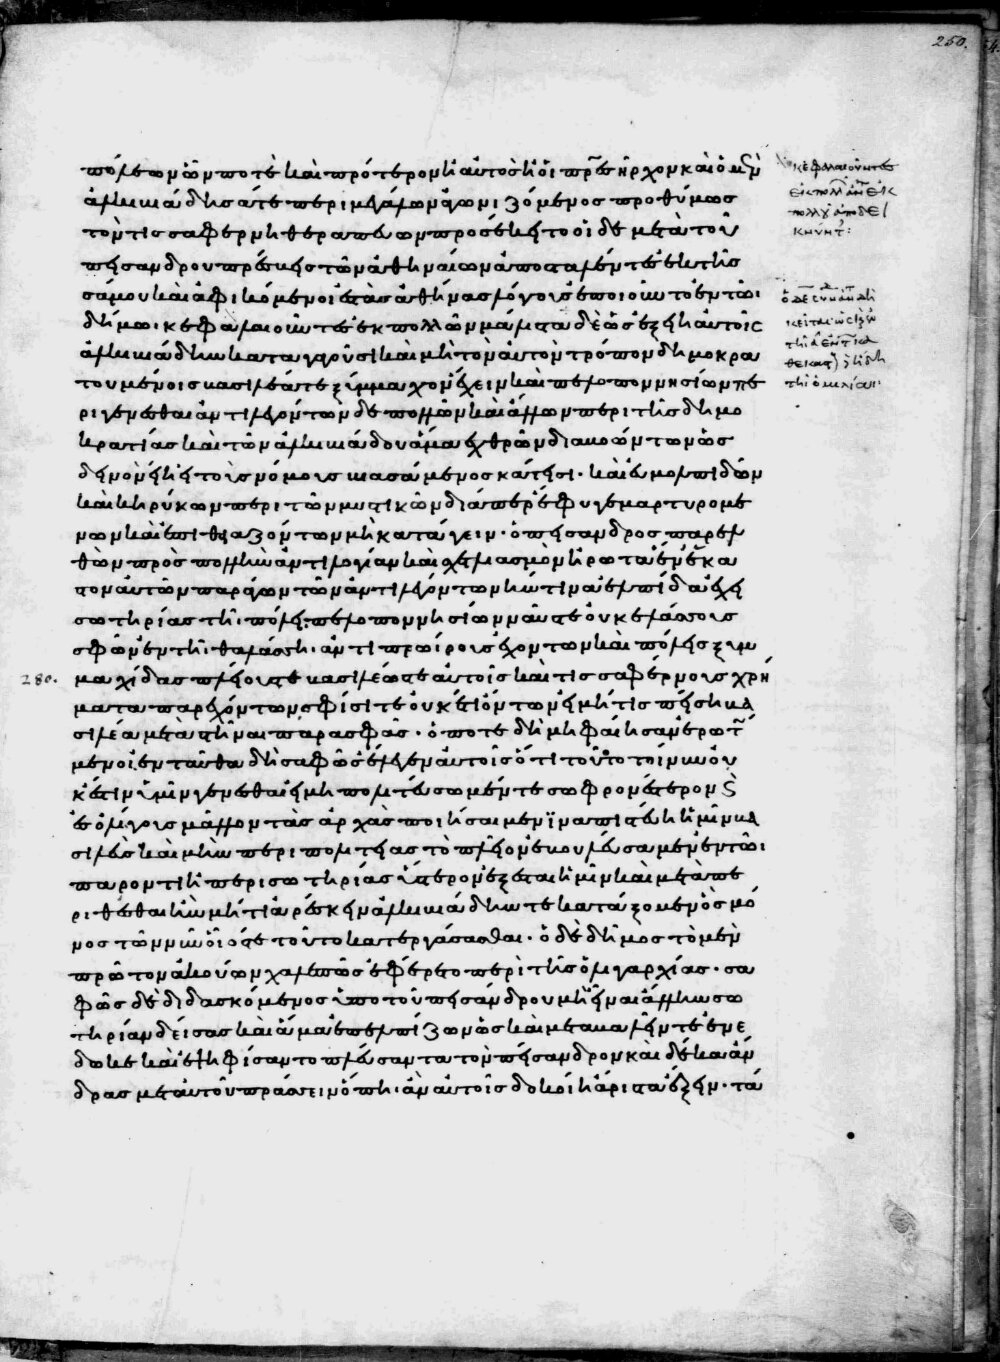 πόλεων ὧν ποτὲ καὶ πρότερον ἢ αὐτὸς ἢ οἱ πρ̅ες ἦρχον καὶ ὁ μὲν
ἀλκιβιάδης ἅτε περὶ μεγάλων ἀγωνιζόμενος προθύμως
τὸν τισσαφέρνη θεραπεύων προσέκειτο οἱ δὲ μετὰ τοῦ
πεισάνδρου πρέσβεις τῶν ἀθηναίων ἀποσταλέντες ἐκ τῆς
σάμου καὶ ἀφικόμενοι ἐς τὰς ἀθήνας λόγους ἐποιοῦντο ἐν τῶι
δήμωι κεφαλαιοῦντες ἐκ πολλῶν μάλιστα δὲ ὡς ἐξείη αὐτοῖς
ἀλκιβιάδην καταγαγοῦσι καὶ μὴ τὸν αὐτὸν τρόπον δημοκρα
τουμένοις βασιλέα τε ξύμμαχον ἔχειν καὶ πελοποννησίων πε
ριγενέσθαι ἀντιλεγόντων δὲ πολλῶν καὶ ἄλλων περὶ τῆς δημο
κρατίας καὶ τῶν ἀλκιβιάδου ἅμα ἐχθρῶν διαβοώντων ὡς
δεινὸν εἴη εἰ τοὺς νόμους βιασάμενος κάτεισι· καὶ εὐμολπιδῶν
καὶ κηρύκων περὶ τῶν μυστικῶν διάπερ ἔφυγε μαρτυρομέ
νων καὶ ἐπιθειαζόντων μὴ κατάγειν· ὁ πείσανδρος παρελ
θὼν πρὸς πολλὴν ἀντιλογίαν καὶ σχετλιασμὸν ἠρώτα ἕνα ἕκα
στον αὐτῶν παράγων τῶν ἀντιλεγόντων ἥντινα ἐλπίδα ἔχει
σωτηρίας τῆι πόλει πελοποννησίων ναῦς τε οὐκ ἐλάσσους
σφῶν ἐν τῆι θαλάσσηι ἀντιπρώιρους ἐχόντων καὶ πόλεις ξυμ
280. μαχίδας πλείους τε βασιλέως τε αὐτοῖς καὶ τισσαφέρνους χρή
ματα παρεχόντων σφίσι τε οὐκέτι ὄντων εἰ μή τις πείσῃ βα
σιλέα μεταστῆναι παρὰ σφᾶς· ὁπότε δὴ μὴ φαίησαν ἐρωτώ
μενοι ἐνταῦθα δὴ σαφῶς ἔλεγεν αὐτοῖς ὅτι τοῦτο τοίνυν οὐ
κ ἔστιν ἡμῖν γενέσθαι εἰ μὴ πολιτεύσωμέν τε σωφρονέστερον καὶ
ἐς ὀλίγους μᾶλλον τὰς ἀρχὰς ποιήσαιμεν ἵνα πιστεύηι ἡμῖν βα
σιλεὺς καὶ μὴν περὶ πολιτείας τὸ πλεῖον βουλεύσαμεν ἐν τῶι
παρόντι ἢ περὶ σωτηρίας ὕστερον ἔξεσται ἡμῖν καὶ μεταπε
ριθέσθαι ἢν μή τι ἀρέσκῃ ἀλκιβιάδην τε κατάξομεν ὃς μό
νος τῶν νῦν οἷός τε τοῦτο κατεργάσασθαι· ὁ δὲ δῆμος τὸ μὲν
πρῶτον ἀκούων χαλεπῶς ἔφερε τὸ περὶ τῆς ὀλιγαρχίας· σα
φῶς δὲ διδασκόμενος ὑπὸ τοῦ πεισάνδρου μὴ εἶναι ἄλλην σω
τηρίαν δείσας καὶ ἅμα ἐπελπίζων ὡς καὶ μεταβαλεῖται ἐνέ
δωκε καὶ ἐψηφίσαντο πλεύσαντα τὸν πείσανδρον καὶ δέκα ἄν
δρας μετ αὐτοῦ πράσσειν ὅπηι ἂν αὐτοῖς δοκοίη ἄριστα ἕξειν· τά
250.
κεφαλαιοῦντες
ἐκ πολλῶν